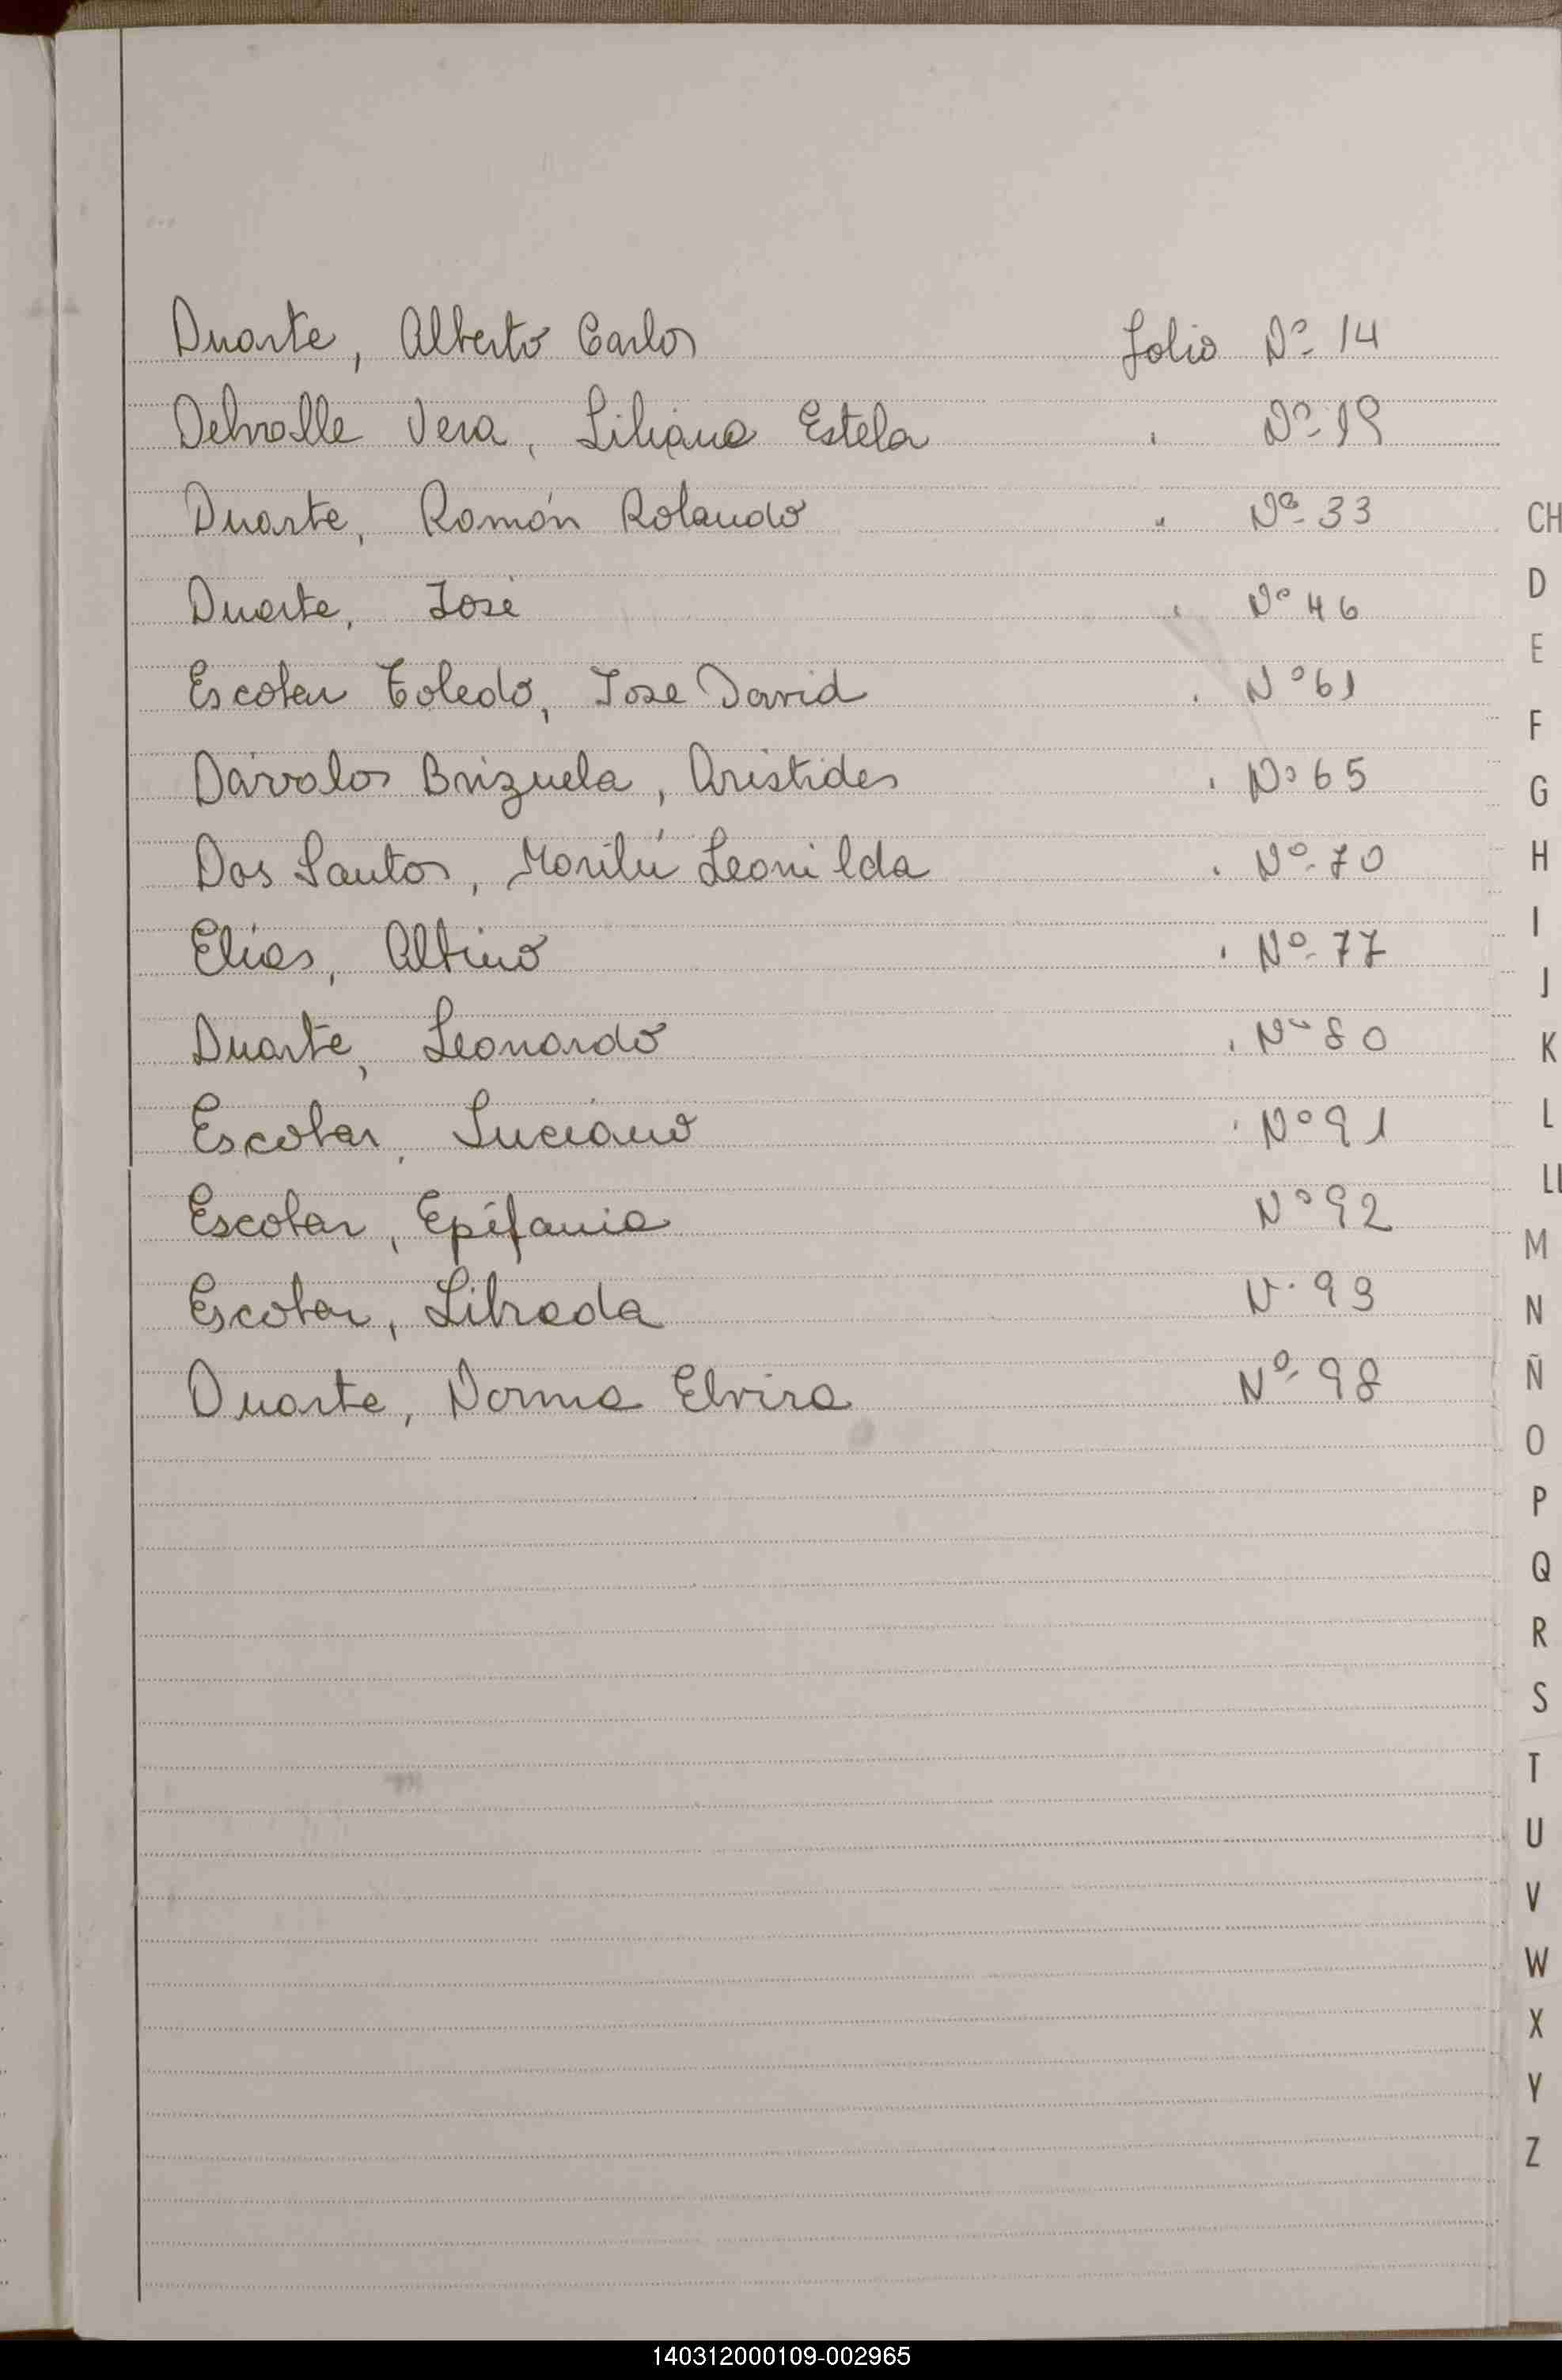 Duarte, Alberto Carlos Folio Nº 14
Delvalle Vera, Liliana Estela " Nº 19
Duarte, Ramón Rolando " Nº 33
Duarte, José " Nº 46
Escobar Toledo, Jose David " Nº 61
Dávalos Brizuela, Aristides " Nº 65
Dos Santos, Marilú Leonilda " Nº 70
Elías, Albino " Nº 77
Duarte, Leonardo " Nº 80
Escobar, Luciano " Nº 91
Escobar, Epifania Nº 92
Escobar, Librada Nº 93
Duarte, Norma Elvira Nº 98
CH
D
E
F
G
H
I
J
K
L
LL
M
N
Ñ
O
P
Q
R
S
T
U
V
W
X
Y
Z
140312000109-002965